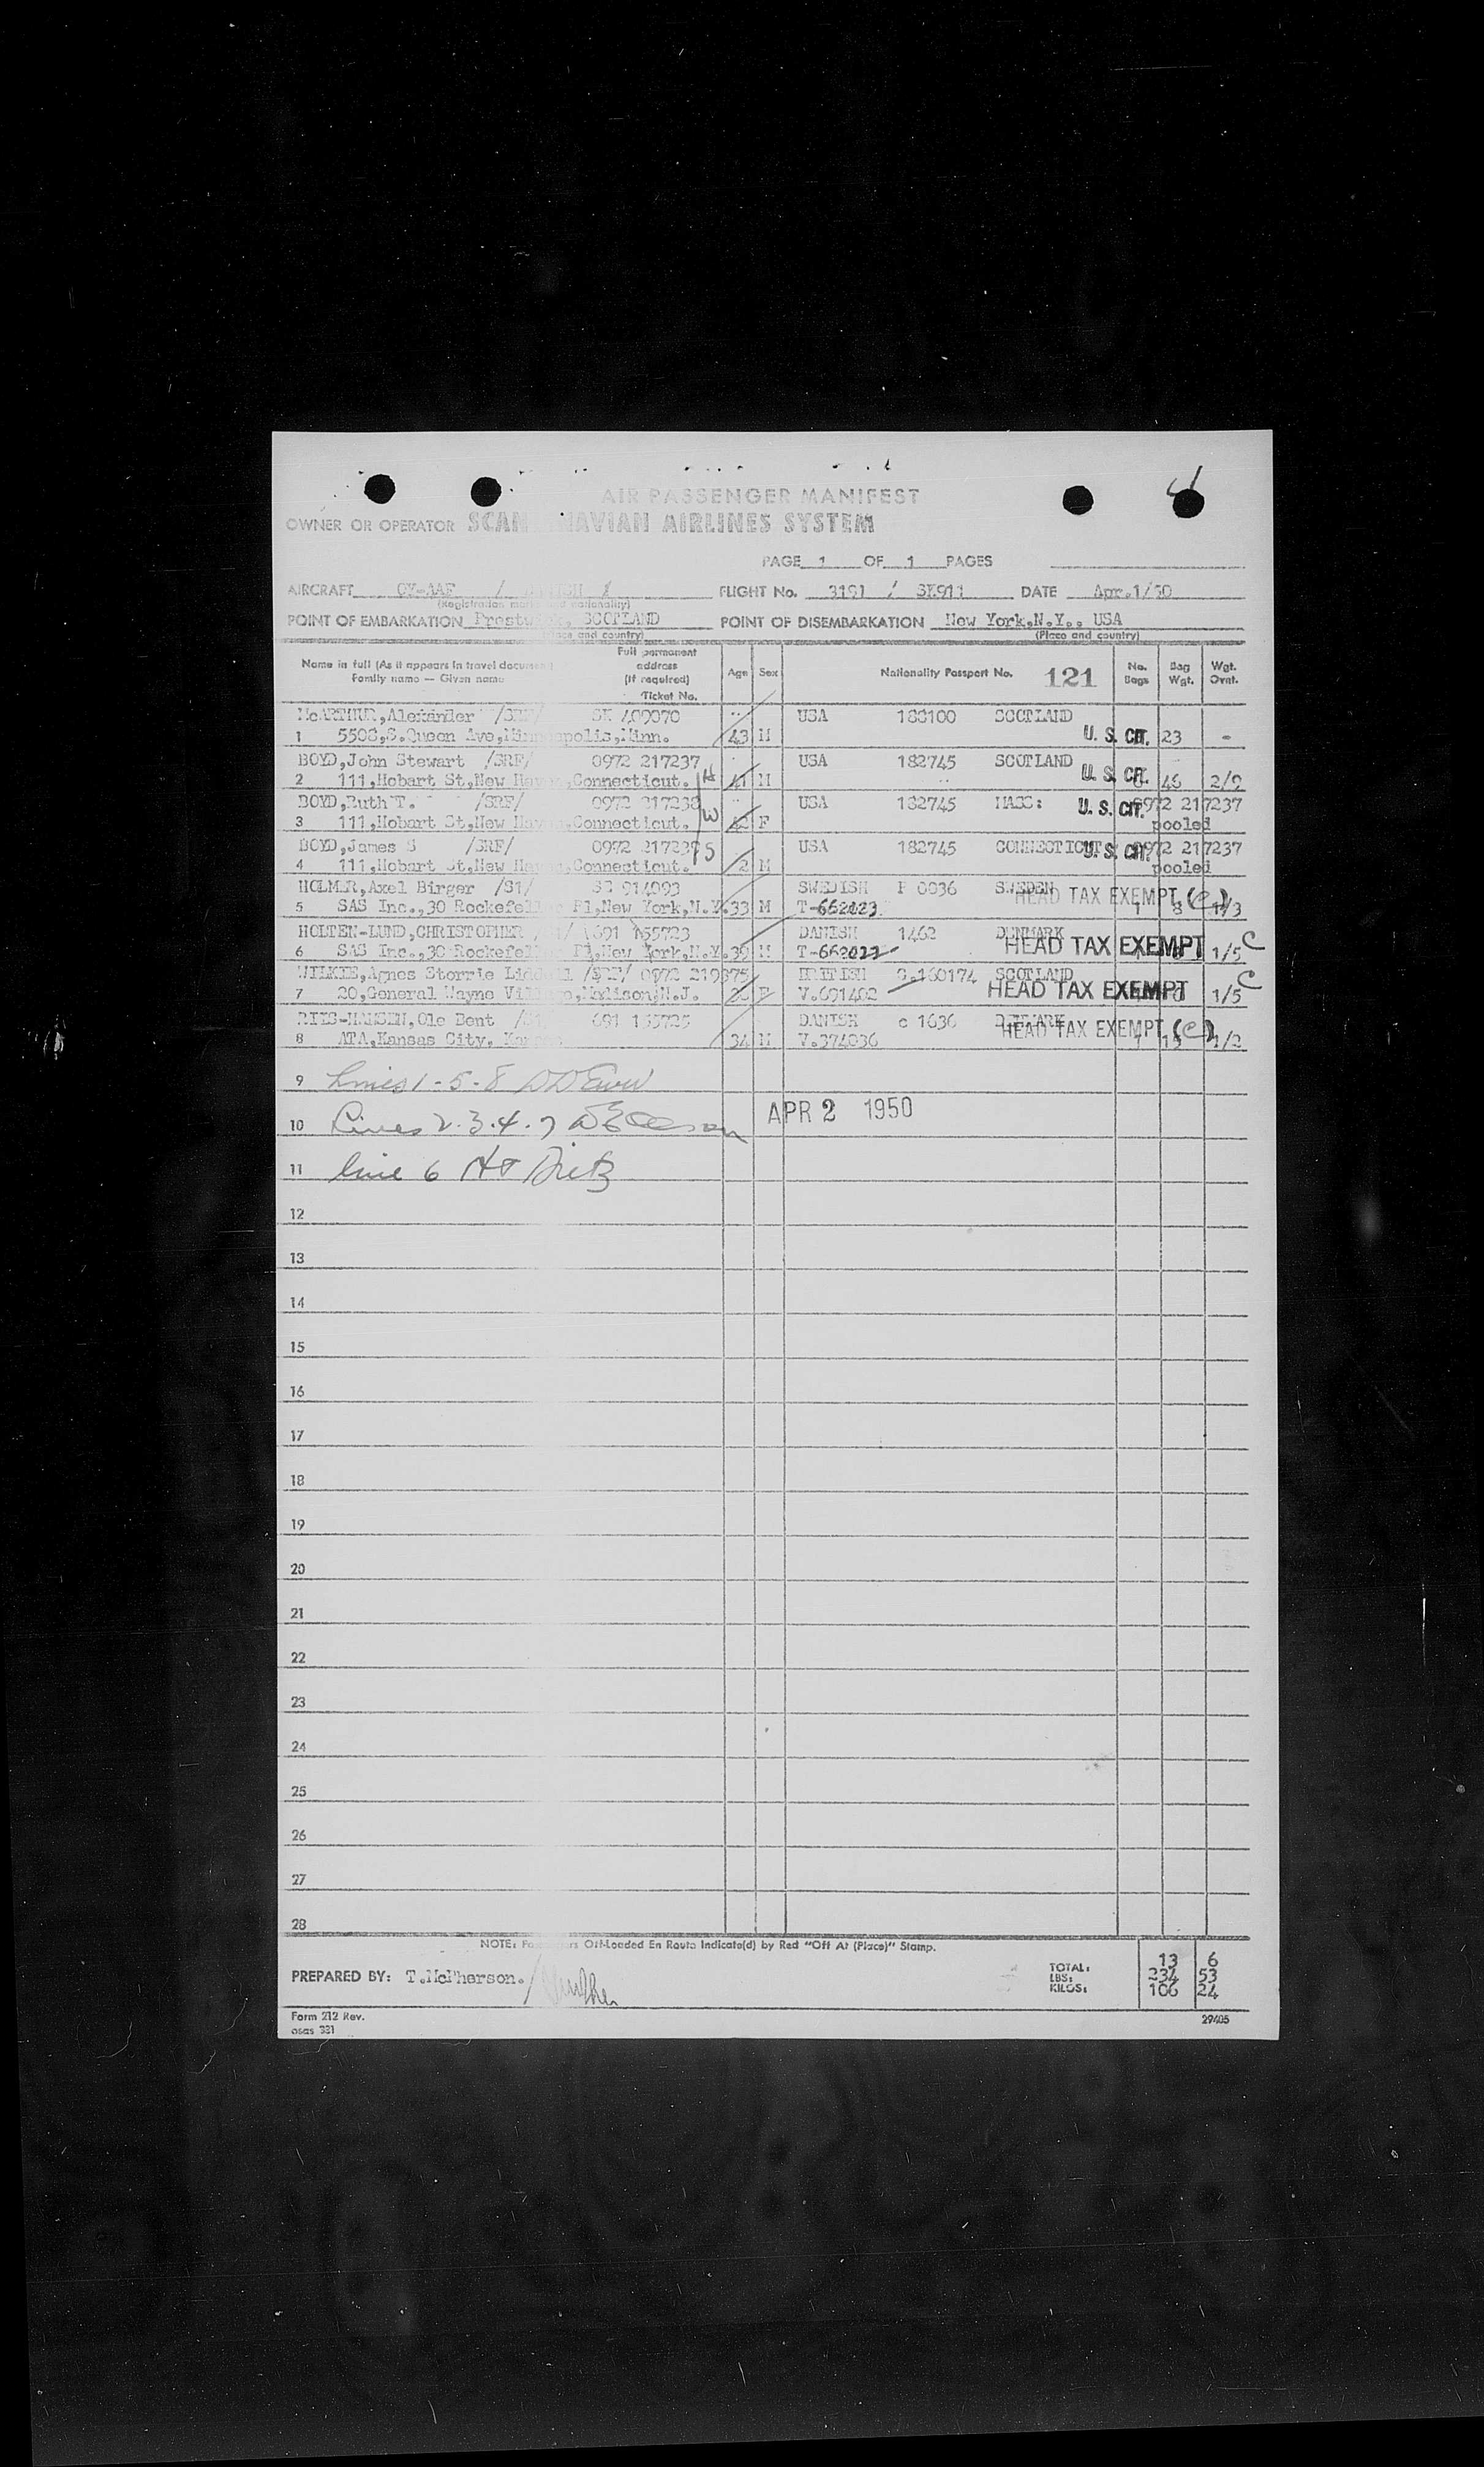 AIR PASSENGER MANIFEST
OWNER OR OPERATOR SCAN AVIAN AIRLINES SYSTEM
PAGE 1 OF 1 PAGES
AIRCRAFT OY-AAF / FLIGHT No. 3191 / SK911 DATE Apr.1/50
(Registration marks and nationality)
POINT OF EMBARKATION Prestwick, SCOTLAND POINT OF DISEMBARKATION New York,N.Y., USA
(Place and country) (Place and country)
Name in full (As it appears in travel document) Full permanent address (If required) Age Sex Nationality Passport No. 121 No. Bags Bag Wgt. Wgt. Ovnt.
Family name — Given name Ticket No.
McARTHUR,Alexander /SRF/ SK 400070 USA 188100 SCOTLAND
1 5508,S.Queen Ave,Minneapolis,Minn. 43 M U. S. CIT. 23 -
BOYD,John Stewart /SRF/ 0972 217237 USA 182745 SCOTLAND
2 111,Hobart St,New Haven,Connecticut. H 41 M U. S. CIT. 46 2/9
BOYD,Ruth T. /SRF/ 0972 217238 USA 182745 MASS: U. S. CIT. 0972 217237
3 111,Hobart St,New Haven,Connecticut. W F pooled
BOYD,James S /SRF/ 0972 217239 USA 182745 CONNECTICUT U. S. CIT. 0972 217237
4 111,Hobart St,New Haven,Connecticut. S 2 M pooled
HOLMER,Axel Birger /S1/ 914093 SWEDISH P 0036 SWEDEN HEAD TAX EXEMPT (C)
5 SAS Inc.,30 Rockefeller Pl,New York,N.Y. 33 M T-662423 1 8 1/3
HOLTEN-LUND,CHRISTOPHER 691 155723 DANISH 1462 DENMARK HEAD TAX EXEMPT C
6 SAS Inc.,30 Rockefeller Pl,New York,N.Y. 39 M 1/5
WILKIE,Agnes Storrie Liddell /SRF/ 0972 219375 BRITISH C.160174 SCOTLAND HEAD TAX EXEMPT C
7 20,General Wayne Village,Madison,N.J. F V.691402 1/5
RIIS-HANSEN,Ole Bent 691 155725 DANISH c 1636 DENMARK HEAD TAX EXEMPT (C)
8 ATA,Kansas City, Kansas 34 M V.374036 1 15 1/2
9 Lines 1-5-8
10 Lines 2.3.4.7 APR 2 1950
11 line 6 Dietz
12
13
14
15
16
17
18
19
20
21
22
23
24
25
26
27
28
NOTE: Passengers Off-Loaded En Route Indicate(d) by Red "Off At (Place)" Stamp.
PREPARED BY: T.McPherson. TOTAL: 13 6
LBS: 234 53
KILOS: 106 24
Form 212 Rev.
osas 331 29405